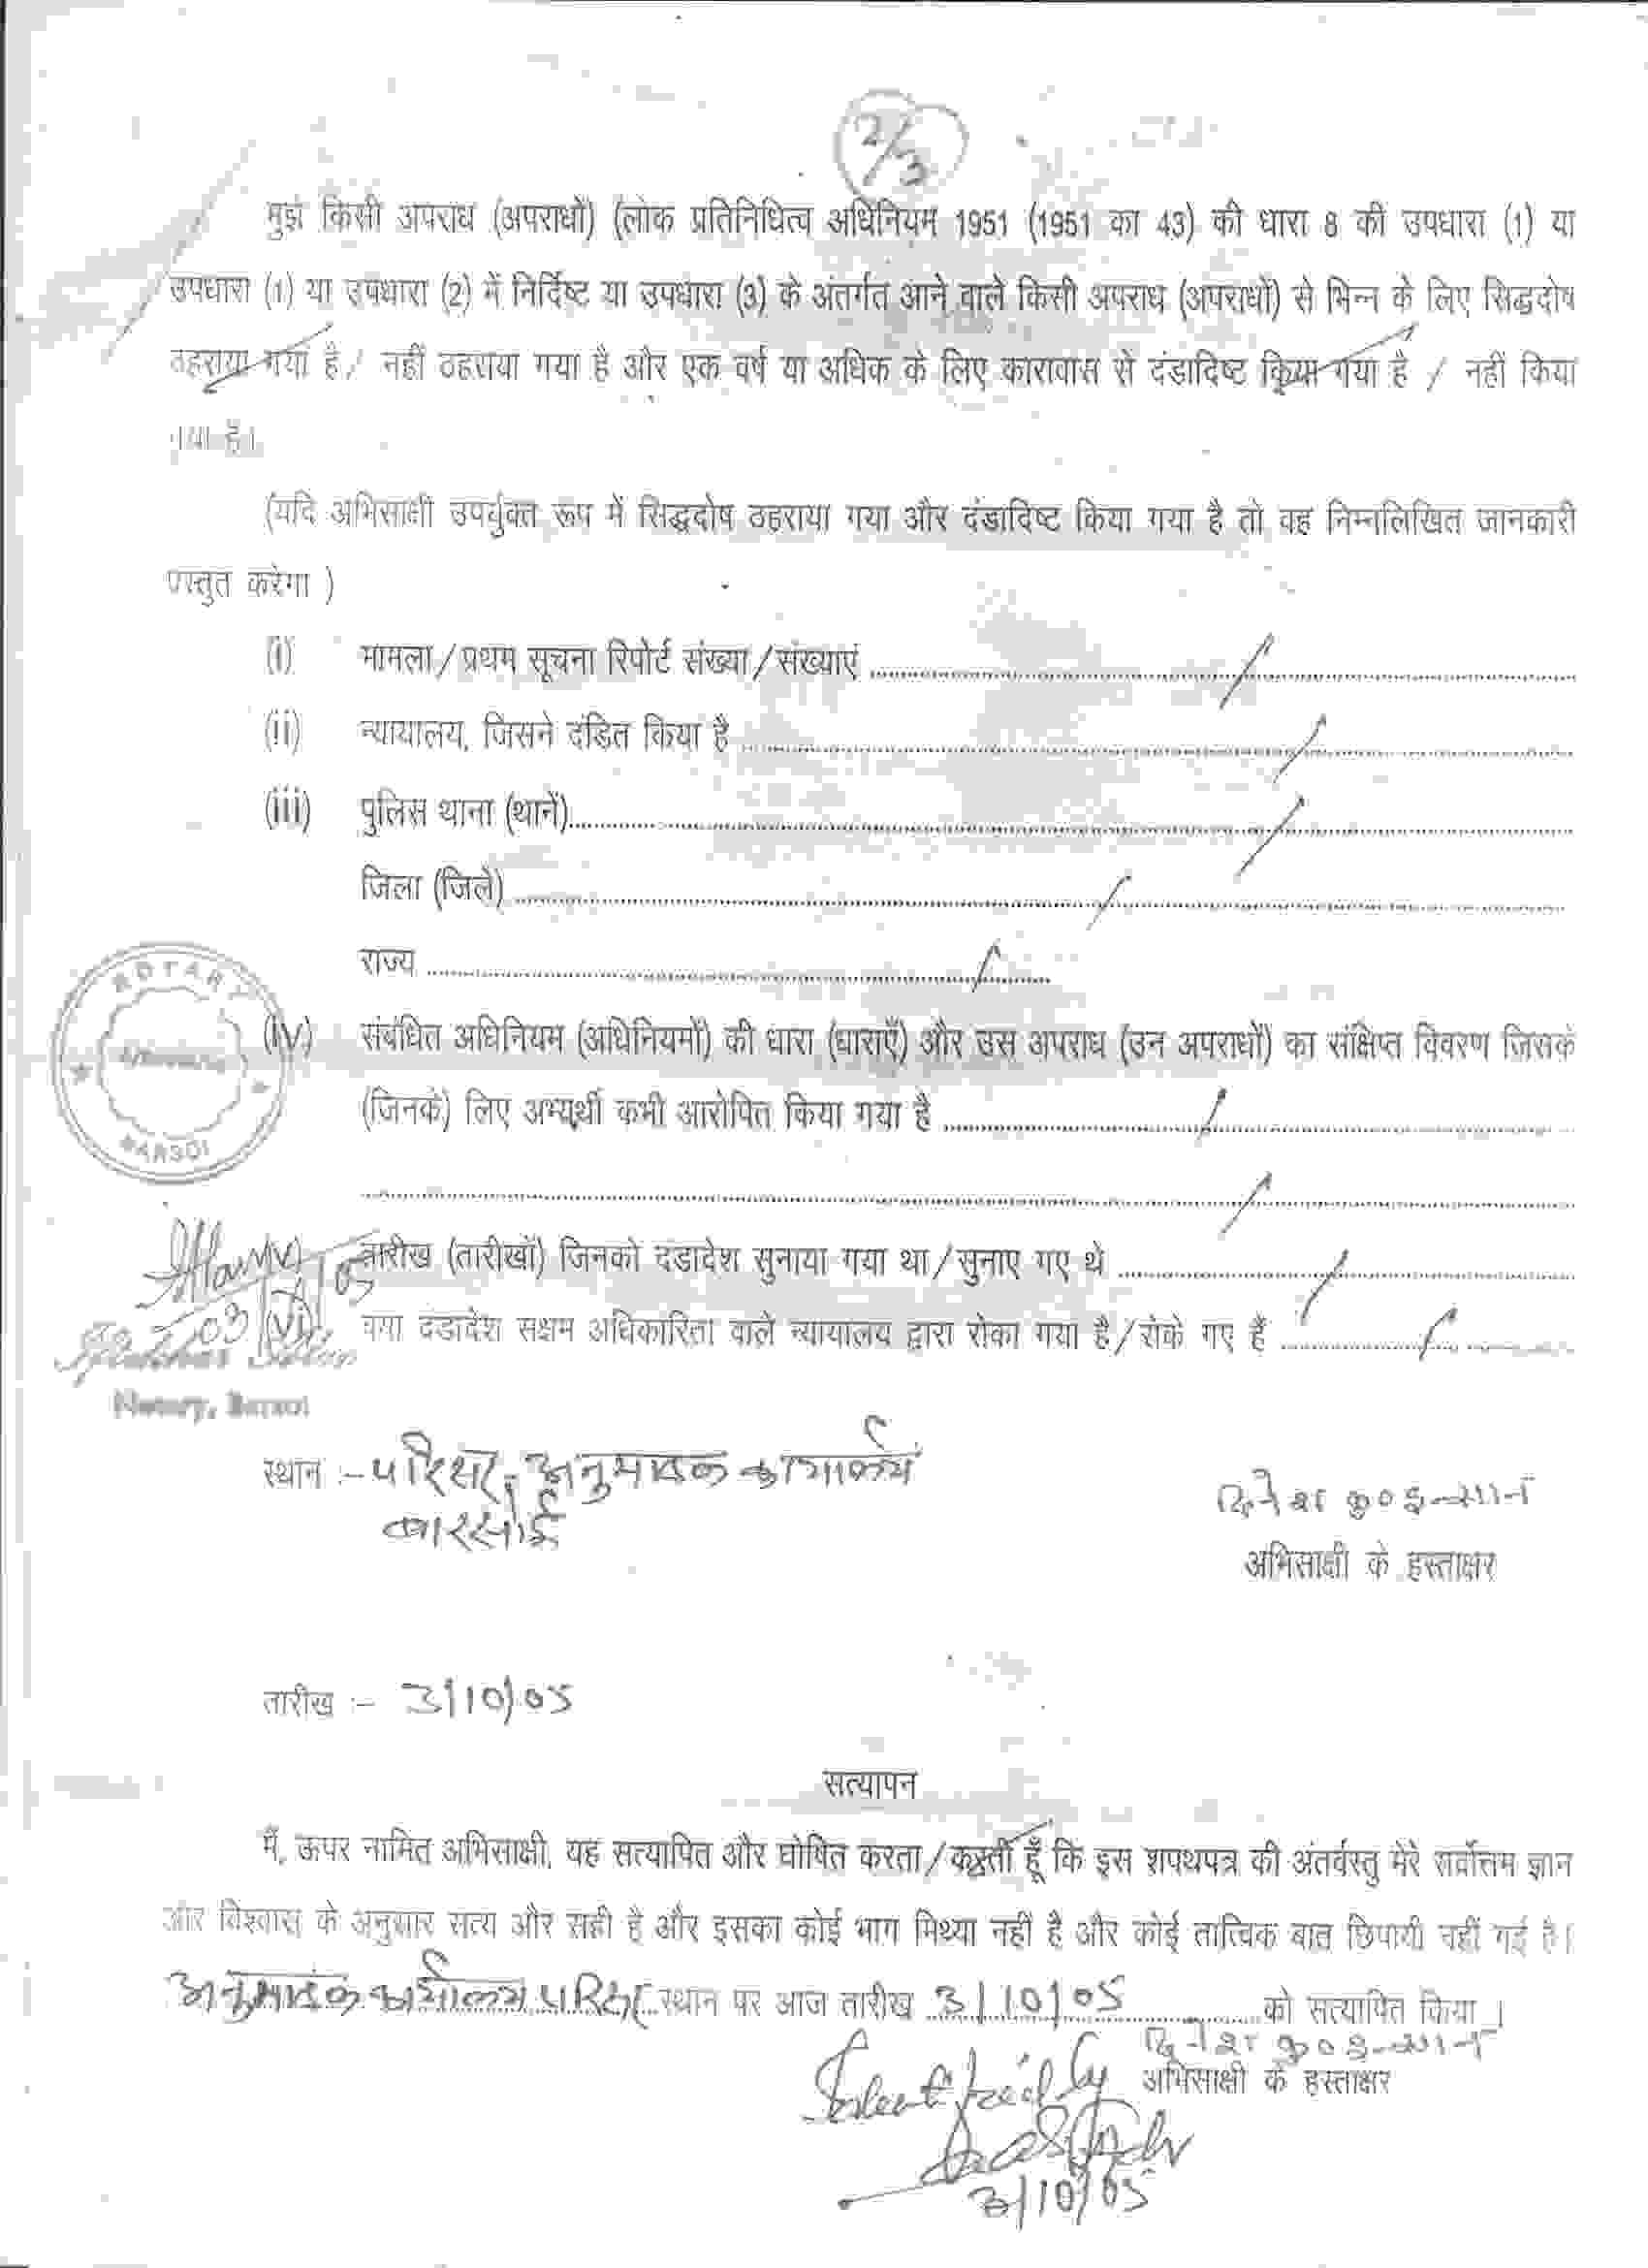 2/3
मुझे किसी अपराध (अपराधों) (लोक प्रतिनिधित्व अधिनियम 1951 (1951 का 43) की धारा 8 की उपधारा (1) या
उपधारा (1) या उपधारा (2) में निर्दिष्ट या उपधारा (3) के अंतर्गत आने वाले किसी अपराध (अपराधों) से भिन्न के लिए सिद्धदोष
ठहराया गया है / नहीं ठहराया गया है और एक वर्ष या अधिक के लिए कारावास से दंडादिष्ट किया गया है / नहीं किया
गया है।
(यदि अभिसाक्षी उपर्युक्त रूप में सिद्धदोष ठहराया गया और दंडादिष्ट किया गया है तो वह निम्नलिखित जानकारी
प्रस्तुत करेगा )
(i) मामला/प्रथम सूचना रिपोर्ट संख्या/संख्याएं
(ii) न्यायालय, जिसने दंडित किया है
(iii) पुलिस थाना (थानें)
जिला (जिले)
राज्य
NOTARY
(iv) संबंधित अधिनियम (अधिनियमों) की धारा (धाराएँ) और उस अपराध (उन अपराधों) का संक्षिप्त विवरण जिसके
(जिनके) लिए अभ्यर्थी कभी आरोपित किया गया है
BARSOI
(v) तारीख (तारीखों) जिनको दंडादेश सुनाया गया था/सुनाए गए थे
(vi) क्या दंडादेश सक्षम अधिकारिता वाले न्यायालय द्वारा रोका गया है/रोके गए हैं
Notary, Barsoi
स्थान :- परिसर, अनुमंडल कार्यालय
बारसोई
दिनेश कु०
अभिसाक्षी के हस्ताक्षर
तारीख :- 3/10/05
सत्यापन
मैं, ऊपर नामित अभिसाक्षी, यह सत्यापित और घोषित करता/करती हूँ कि इस शपथपत्र की अंतर्वस्तु मेरे सर्वोत्तम ज्ञान
और विश्वास के अनुसार सत्य और सही है और इसका कोई भाग मिथ्या नहीं है और कोई तात्विक बात छिपायी नहीं गई है।
अनुमंडल कार्यालय परिसर स्थान पर आज तारीख 3/10/05 को सत्यापित किया ।
दिनेश कु०
अभिसाक्षी के हस्ताक्षर
Identified by
3/10/05